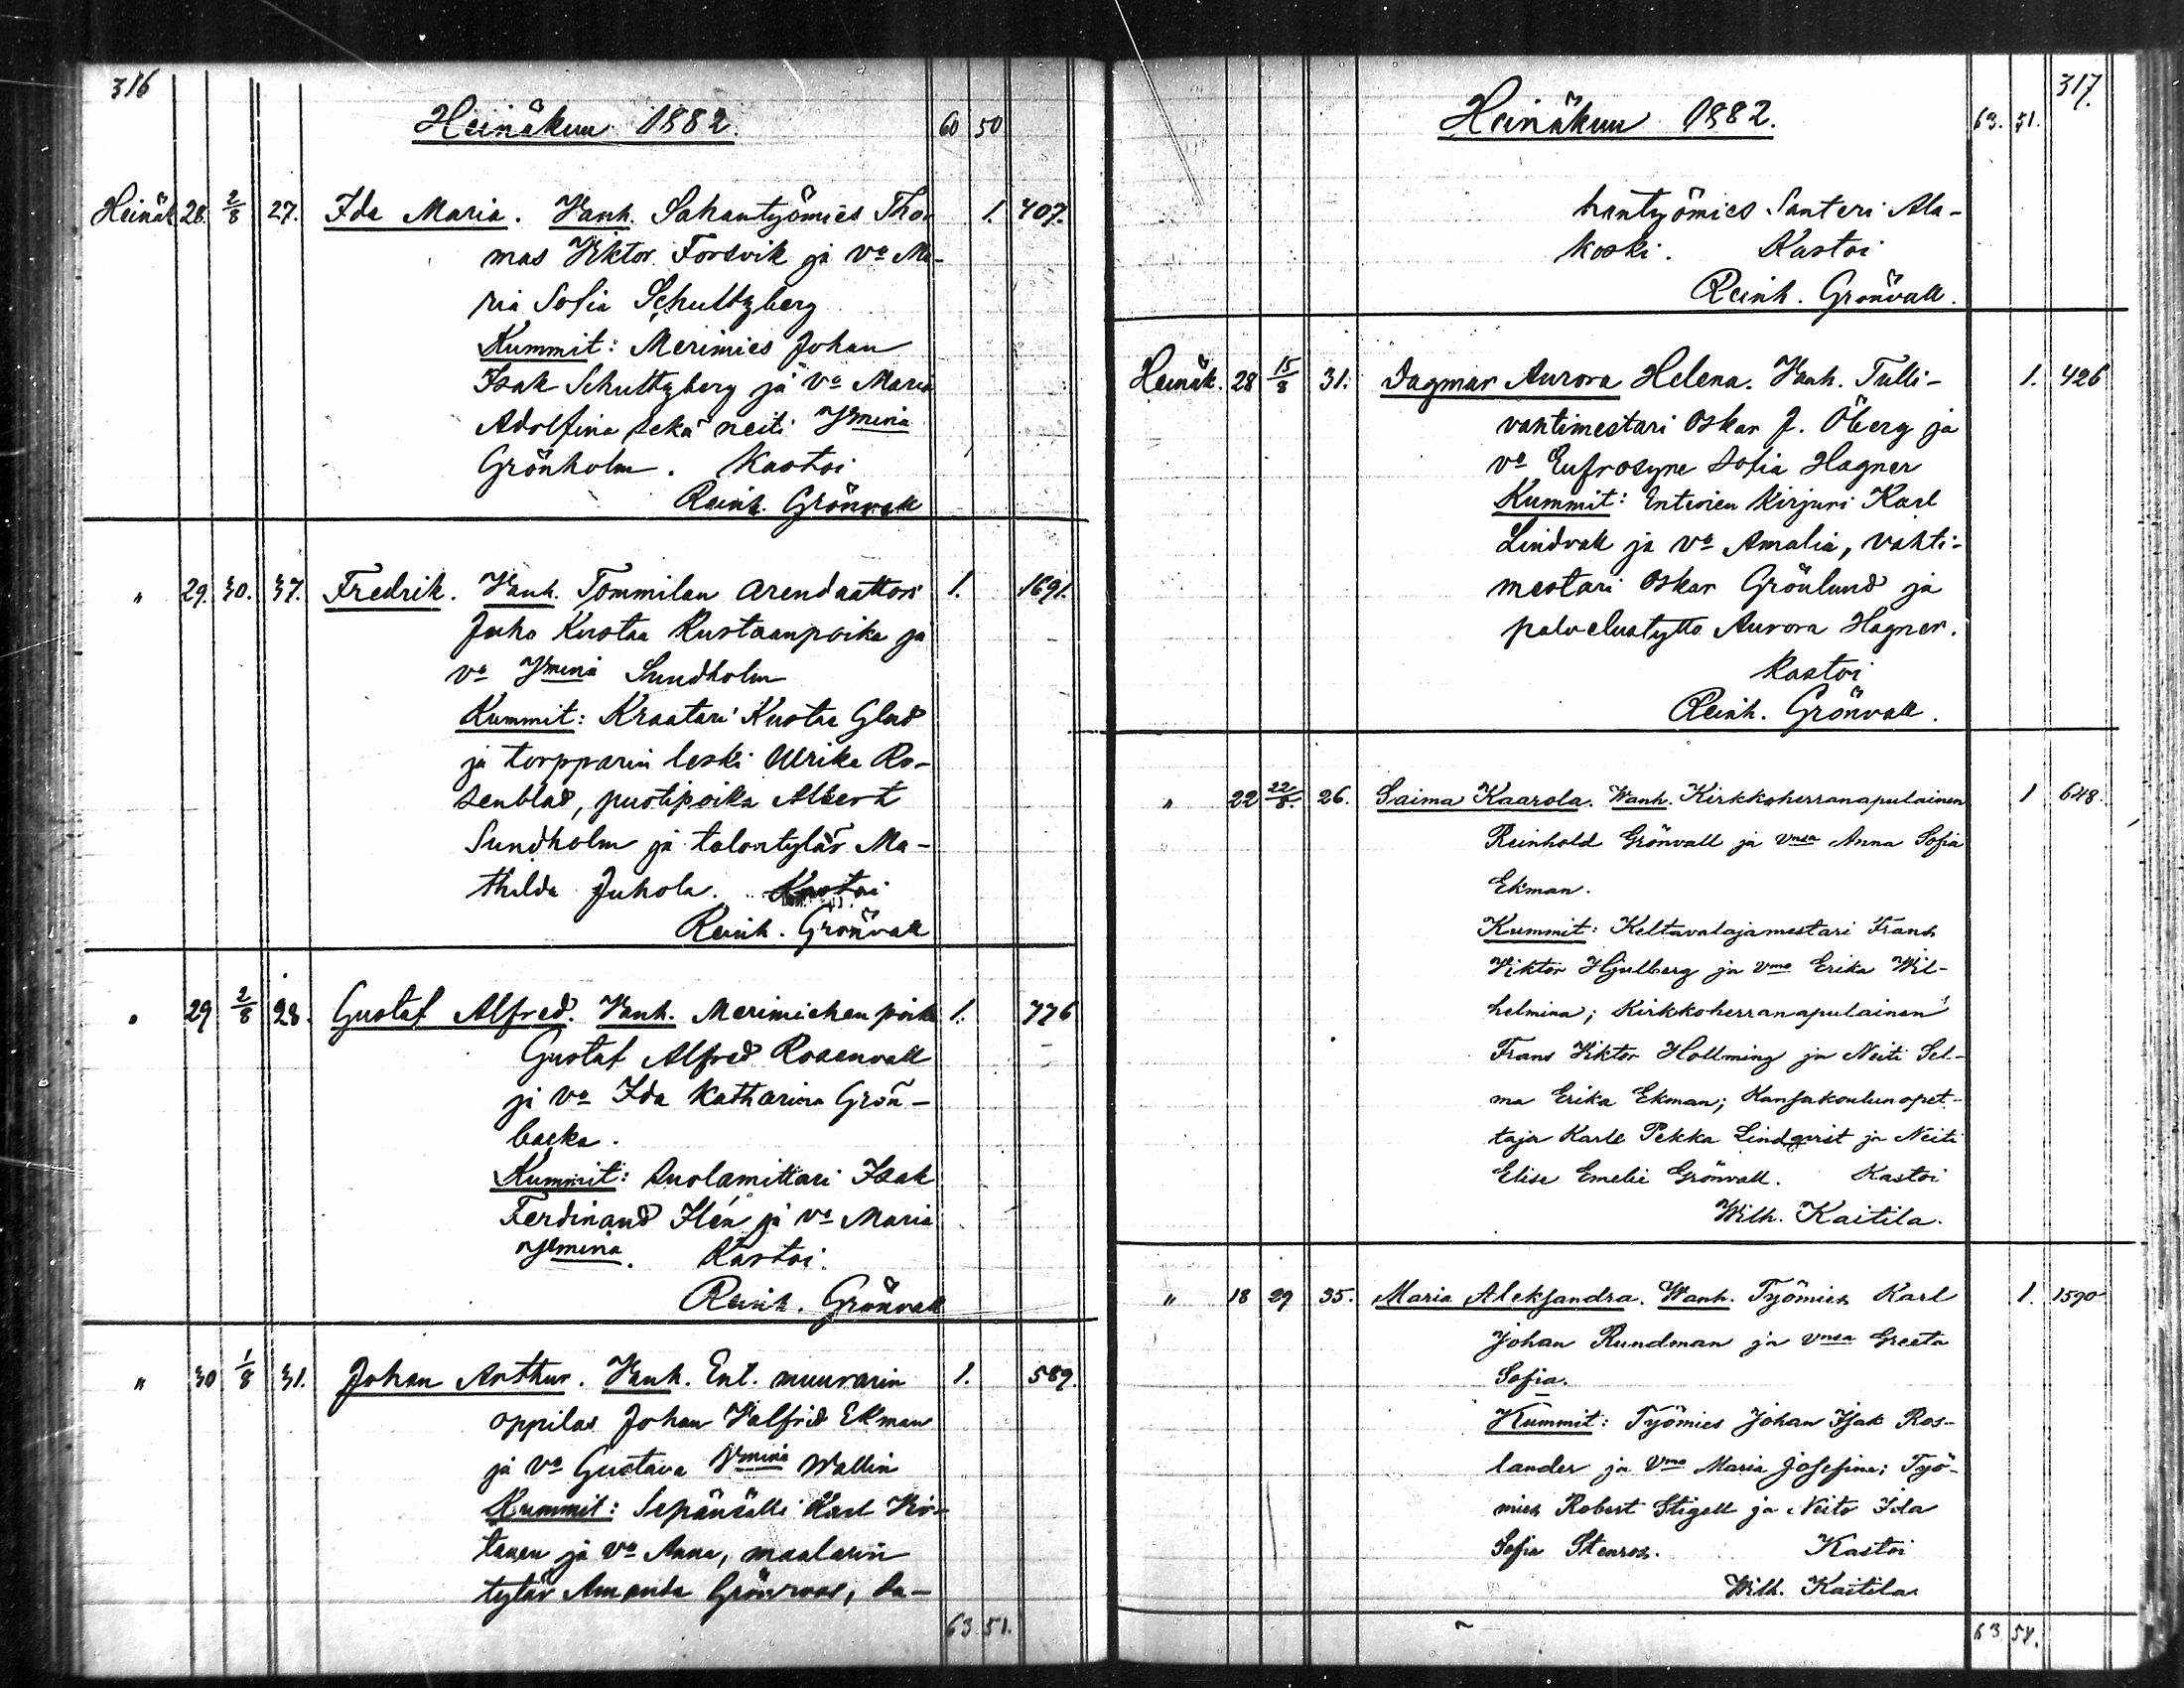 316
Heinäkuu 1882. 60 50
Heinäk. 28. 2/8 27. Ida Maria. Vanh. Sahantyömies Tho- 1. 407.
mas Viktor Forsvik ja vo Ma-
ria Sofia Schultzberg
Kummit: Merimies Johan
Isak Schultzberg ja vo Maria
Adolfina sekä neiti Vmina
Grönholm. Kastoi
Reinh. Grönvall
" 29. 30. 37. Fredrik. Vanh. Tommilan arendaattori 1. 1691.
Juho Kustaa Kustaanpoika ja
vo Vmina Sundholm
Kummit: Kraatari Kustaa Glad
ja torpparin leski Ulrika Ro-
senblad, puotipoika Albert
Sundholm ja talontytär Ma-
thilda Juhola. Kastoi
Reinh. Grönvall
" 29 2/8 28. Gustaf Alfred. Vanh. Merimiehen poika 1. 776
Gustaf Alfred Rosenvall
ja vo Ida Katharina Grön-
backa.
Kummit: Suolamittari Isak
Ferdinand Ilén ja vo Maria
Vmina. Kastoi.
Reinh. Grönvall
" 30 1/8 31. Johan Arthur. Vanh. Ent. muurarin 1. 589.
oppilas Johan Valfrid Ekman
ja vo Gustava Vmina Wallin
Kummit: Sepänsälli Karl
tanen ja vo Anna, maalarin
tytär Amanda Grönroos, sa-
63 51.
317.
Heinäkuu 1882. 63. 51.
hantyömies Santeri Ala-
koski. Kastoi
Reinh. Grönvall.
Heinäk. 28 15/8 31. Dagmar Aurora Helena. Vanh. Tulli- 1. 426
vahtimestari Oskar J. Öberg ja
vo Eufrosyne Sofia Hagner
Kummit: Entinen kirjuri Karl
Lindvall ja vo Amalia, vahti-
mestari Oskar Grönlund ja
palvelustyttö Aurora Hagner.
Kastoi
Reinh. Grönvall.
" 22 22/8. 26. Saima Kaarola. Wanh. Kirkkoherranapulainen 1 648.
Reinhold Grönvall ja vnsa Anna Sofia
Ekman.
Kummit: Keltavalajamestari Frans
Viktor Hjulberg ja vmo Erika Wil-
helmina; Kirkkoherranapulainen
Frans Viktor Hollming ja Neiti Sel-
ma Erika Ekman; Kansakoulunopet-
taja Karle Pekka Lindqvist ja Neiti
Elise Emelie Grönvall. Kastoi
Wilh. Kaitila.
" 18 29 35. Maria Aleksandra. Wanh. Työmies Karl 1. 1590
Johan Rundman ja vnsa Greeta
Sofia.
Kummit: Työmies Johan Isak Ros-
lander ja Vmo Maria Josefina; Työ-
mies Robert Stigell ja Neito Ida
Sofia Stenros. Kastoi
Wilh. Kaitila.
63 54.